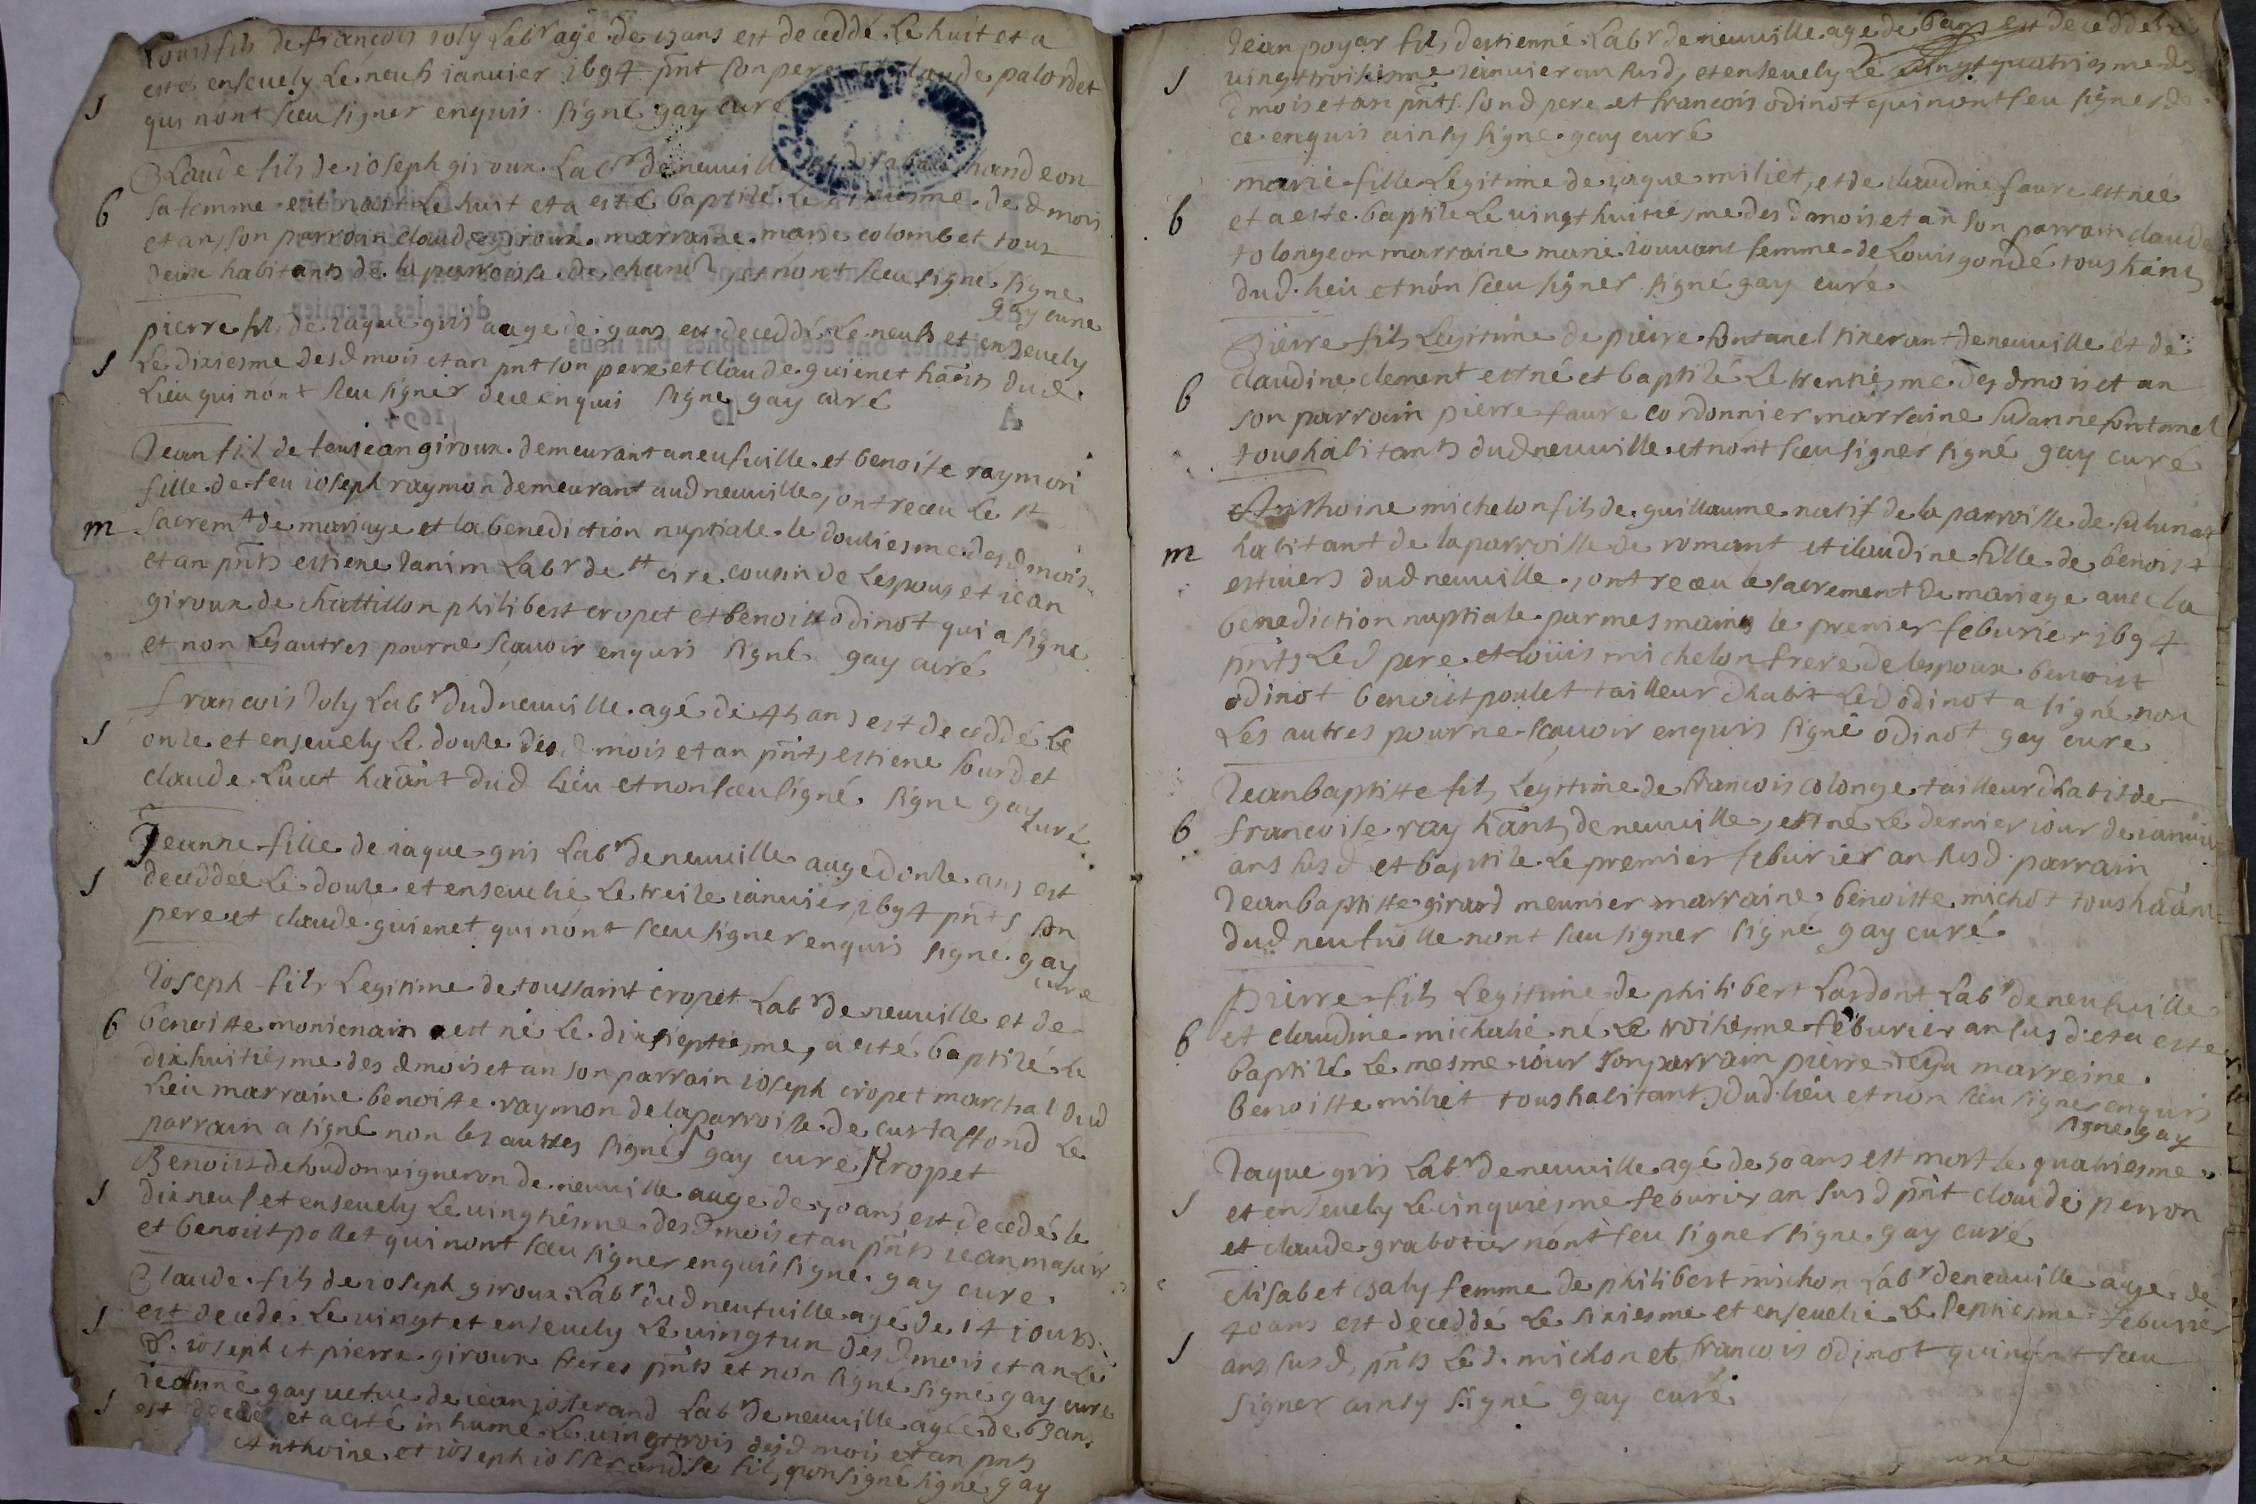 Louis fils de françois ioly Labr agé de 13 ans est decedde Le huit et a
esté enseuely Le neufs ianuier 1694 pñt son pere et claude palordet
S
qui nont sceu signer enquis signé gay curé
Claude fils de ioseph giroux Labr de neuuille
B
sa femme est nay Le huit et a esté baptisé Le de d mois
et an, son parrain claude giroux marraine marie colombet tous
deux habitants de la parroisse de chand et nont sceu signe signe
gay cure
pierre fils de iaque gris auge de 9 ans est deceddé Le neufs et enseuely
S
Le dixiesme desd mois et an pnt son pere et claude guienet hãnts dud
Lieu qui nónt sceu signer de ce enquis signe gay curé
Jean fil de feu iean giroux demeurant a neufuille et benoite raymon
fille de feu ioseph raymon demeurant aud neuuille, ont receu Le st
m
sacremt de mariage et la benediction nuptiale le dousiesme desd mois
et an pñts estiene Janim Labr de st cire cousin de Lespous et iean
giroux de chattillon philibert cropet et benoist odinot qui a signé
et non Les autres pour ne scauoir enquis signé gay curé
francois Joly Labr dud neuuille agé de 45 ans est deceddé Le
S
onse et enseuely Le douse desd mois et an pñts estiene sourdet
claude Lucot hãant dud Lieu et non sceu signé signe gay
curé
Jeanne fille de iaque gris Labr de neuuille auge donse ans est
S
deceddée Le douse et enseuelie Le treise ianuier 1694 pñts son
pere et claude guienet qui nónt sceu signer enquis signé gay
cure
Joseph fils Legitime de toussaint cropet Labr de neuuille et de
B
benoitte monienain est né Le dixseptiesme, a esté baptisé Le
dixhuitiesme des d mois et an son parrain ioseph cropet marchal dud
Lieu marraine benoitte raymon de la parroisse de curtaffond Le
parrain a signé non les autres signés gay cure cropet
Benoist de houdon uigneron de neuuille auge de 70 ans est decedé le
S
dixneuf et enseuely Le uingtiesme desd mois et an pñts iean masuir
et benoist pollet qui nont sceu signer enquis signe gay cure
Claude fils de ioseph giroux Labr dud neufuille agé de 14 iours
S
est decedé Le uingt et enseuely Le uingtun desd mois et an Le
d. ioseph et pierre giroux freres pñts et nón signe signé gay cure
ieanne gay uefue de iean iosserand Labr de neuuille agée de 63 ans
S
est decede et a esté inhumé Le uingttrois desd mois et an pnts
Anthoine et ioseph iosserand se fils, qui signé signé gay
Jean poyar fils destienne Labr de neuuille age de 6 ans est decedde
S
uingttroisiesme ianuier an susd, et enseuely Le uingtquatriesme de
d mois et an pñts sond pere et francois odinot qui nont seu signer de
ce enquis ainsy signe gay curé
marie fille Legitime de iaque miliet, et de claudine faure est neé
B
et a esté baptise Le uingthuitiesme des d mois et an son parrain claude
tolongeon marraine marie iouuant femme de Louis gondé tous hãnts
dud Lieu et nón sceu signer signé gay curé
Pierre fils Legitime de pierre fontanel tixerant de neuuille et de
B
claudine clement est né et baptisé Le trentiesme des d mois et an
son parrain pierre faure cordonnier marraine susanne fontanel
tous habitants dud neuuille et nónt sceu signer signé gay curé
Anthoine michelon fils de guillaume natif de la parroisse de
m
habitant de la parroisse de romant et claudine fille de benoist
estiuers dud neuuille, ont receu le sacrement de mariage auec la
benediction nuptiale par mes mains le premier feburier 1694
pñts Led pere et Louis michelon frere de lespoux benoist
odinot benoist poulet tailleur dhabit Led odinot a signé non
Les autres pour ne scauoir enquis signé odinot gay curé
Jean baptiste fils Legitime de francois colonge tailleur dhabis de
B
francoise ray hãnts de neuuille, est né Le dernier iour de ianuier
ans susd et baptisé Le premier feburier an susd parrain
Jean baptiste girard meunier marraine benoitte michot tous hãant
dud neufuille nont sceu signer signé gay curé
Pierre fils Legitime de philibert Lardont Labr de neufuille
B
et claudine michalié né Le troisiesme feburier an susd et a esté
baptisé Le mesme iour son parrain pierre reya marreine
benoitte miliet tous habitants dud lieu et non sceu signer enquis
signe gay
Jaque gris Labr de neuuille agé de 50 ans est mort le quatriesme
S
et enseuely Le cinquiesme feburier an susd pñt claude perron
et claude grabotier nónt seu signer signe gay curé
Elisabet baly femme de philibert michon Labr de neuuille augé de
40 ans est deceddé Le sixiesme et enseuelie Le septiesme feburier
S
ans susd, pñts Led. michon et francois odinot qui nónt sceu
signer ainsy signé gay curé